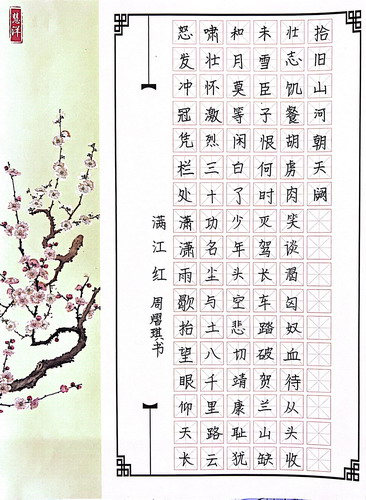 慧洋
满江红 周熠琪书
怒发冲冠凭栏处潇潇雨歇抬望眼仰天长
啸壮怀激烈三十功名尘与土八千里路云
和月莫等闲白了少年头空悲切靖康耻犹
未雪臣子恨何时灭驾长车踏破贺兰山缺
壮志饥餐胡虏肉笑谈渴匈奴血待从头收
拾旧山河朝天阙